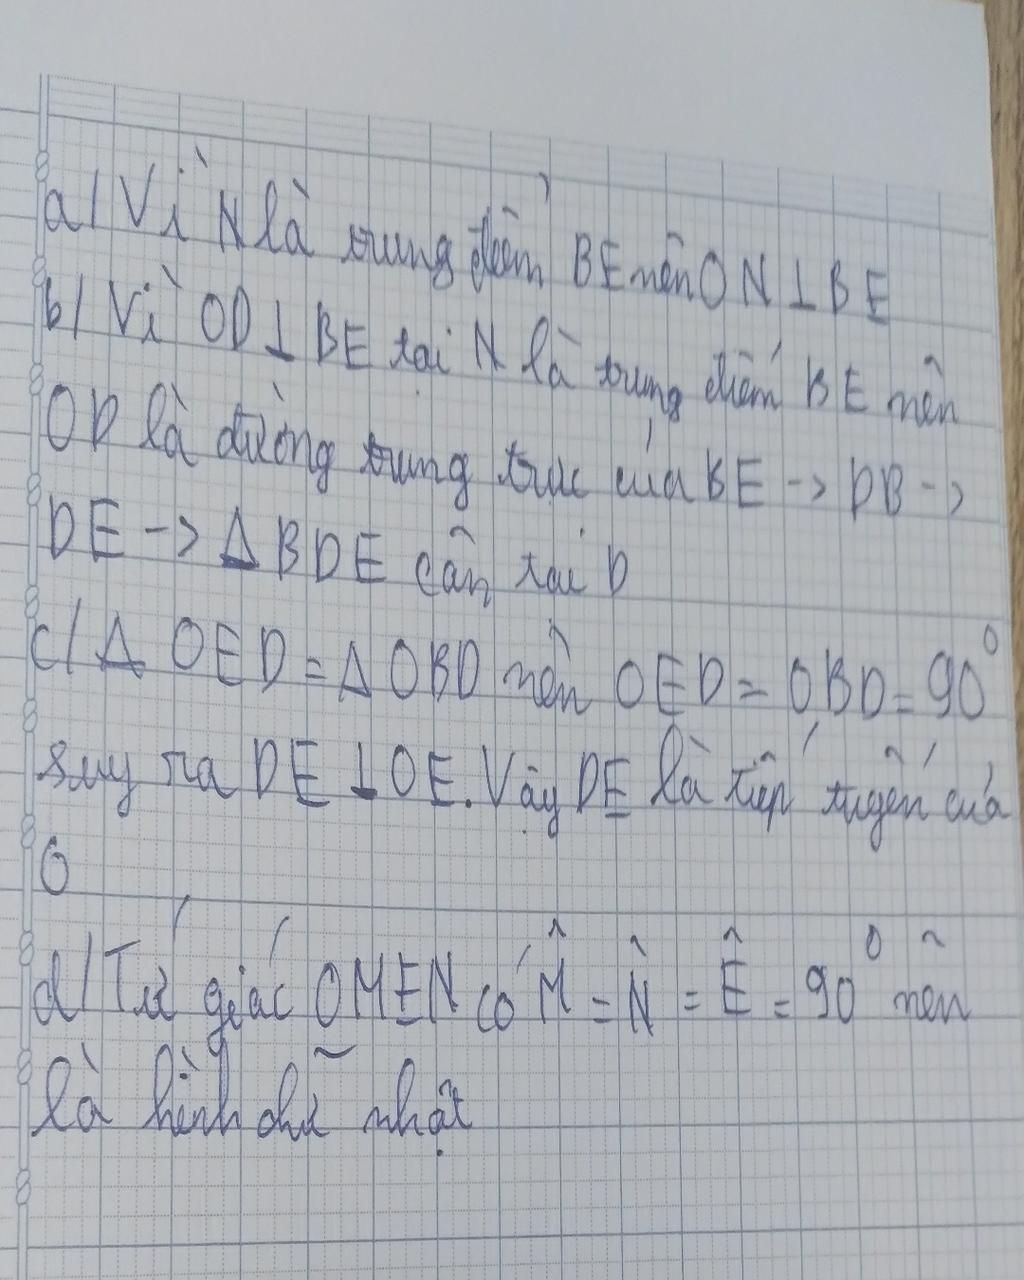 a/ Vì N là trung điểm BE nên ON ⊥ BE
b/ Vì OD ⊥ BE tại N là trung điểm BE nên
OD là đường trung trực của BE -> DB ->
DE -> Δ BDE cân tại D
c/ Δ OED = Δ OBD nên OED = OBD = 90°
suy ra DE ⊥ OE. Vậy DE là tiếp tuyến của
O
d/ Tứ giác OMEN có M̂ = N̂ = Ê = 90° nên
là hình chữ nhật